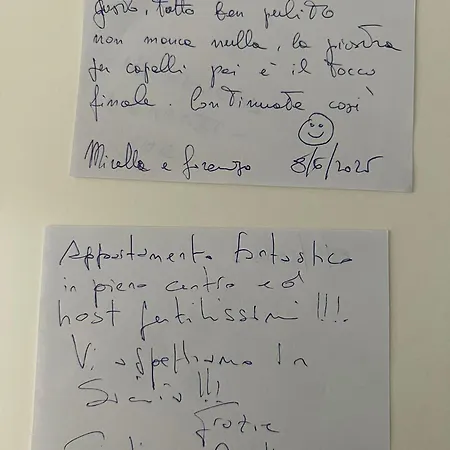 gusto, tutto ben pulito
non manca nulla, la piastra
per capelli poi è il tocco
finale. Continuate così
Mirella e Lorenzo 8/6/2025
Appartamento fantastico
in pieno centro ed
host gentilissimi !!!.
Vi aspettiamo In
Sicilia !!!
Grazie